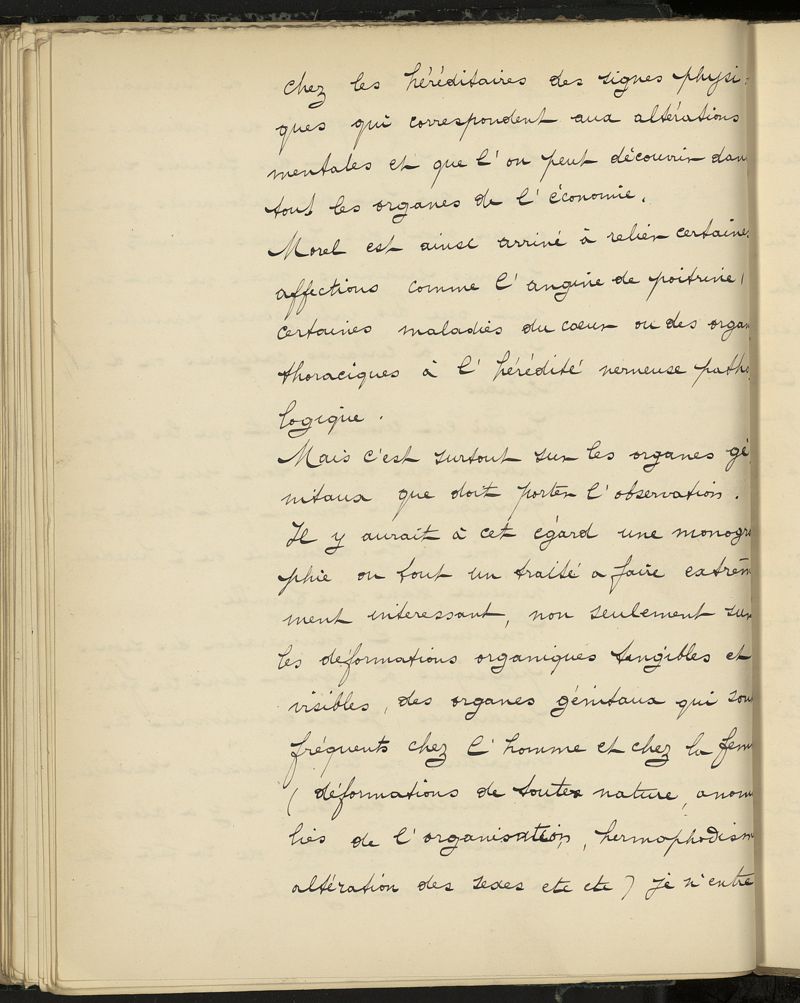 chez les héréditaires des signes physi=
ques qui correspondent aux altérations
mentales et que l'on peut découvrir dan
tout les organes de l'économie.
Morel est ainsi arrivé à relier certaines
affections comme l'angine de poitrine,
certaines maladies du cœur ou des organ
thoraciques à l'hérédité nerveuse patho
logique.
Mais c'est surtout sur les organes gé
nitaux que doit porter l'observation.
Il y aurait à cet égard une monogra
phie ou tout un traité a faire extrêm
ment interessant, non seulement sur
les déformations organiques tangibles et
visibles, des organes génitaux qui sont
fréquents chez l'homme et chez la fem
(déformations de toutes nature, anom
lies de l'organisation, hermaphodism
altération des sexes etc etc) je n'entre